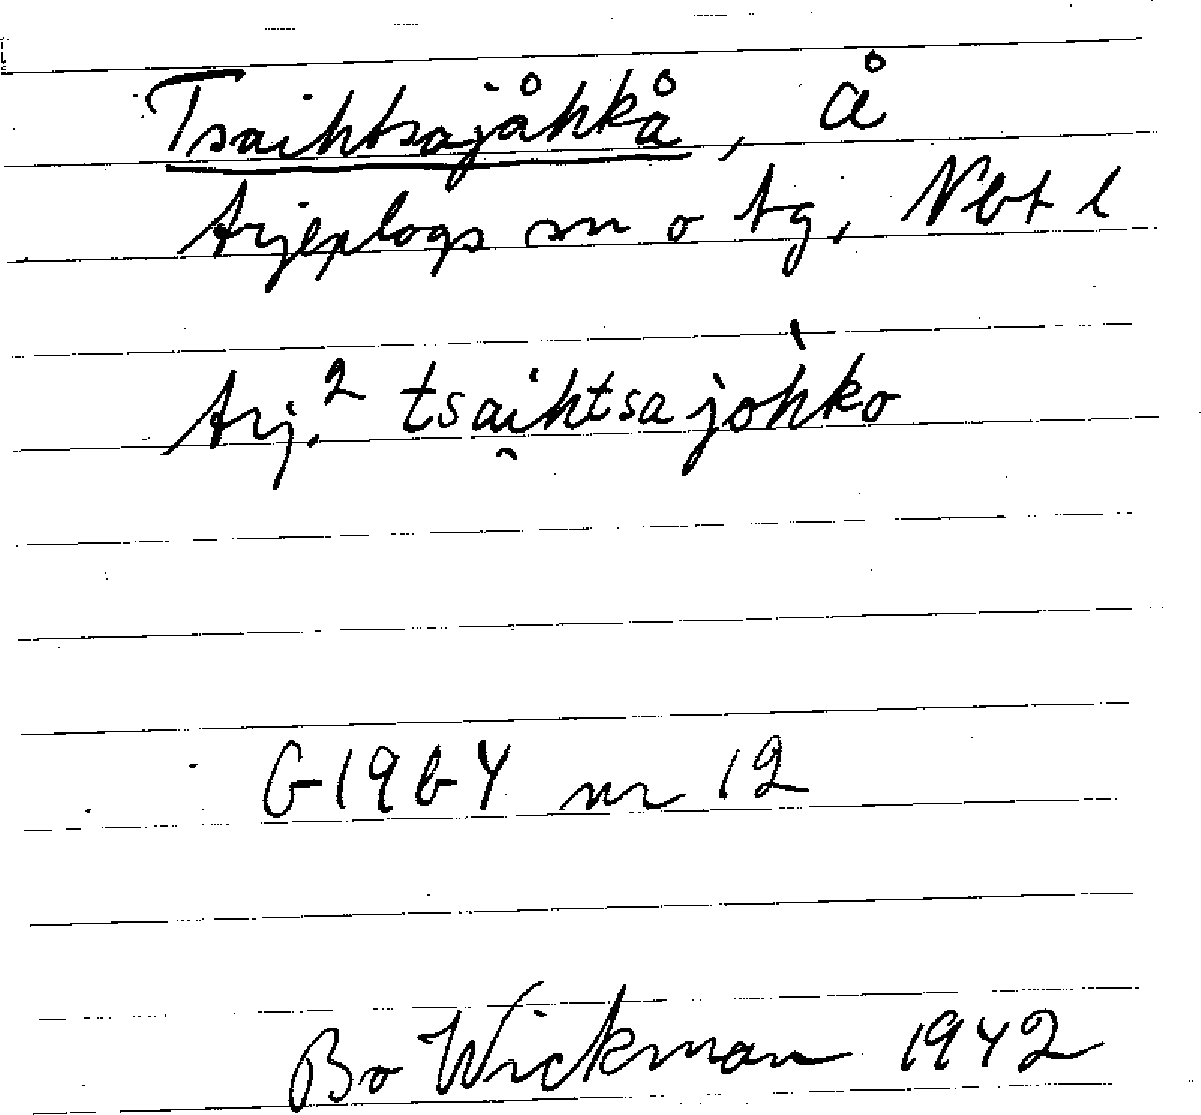 Tsaihtsajåhkå, å
Arjeplogs sn o tg, Nbt l
Arj.² tsai̯htsajòhko
G 19 b 4 nr 12
Bo Wickman 1942